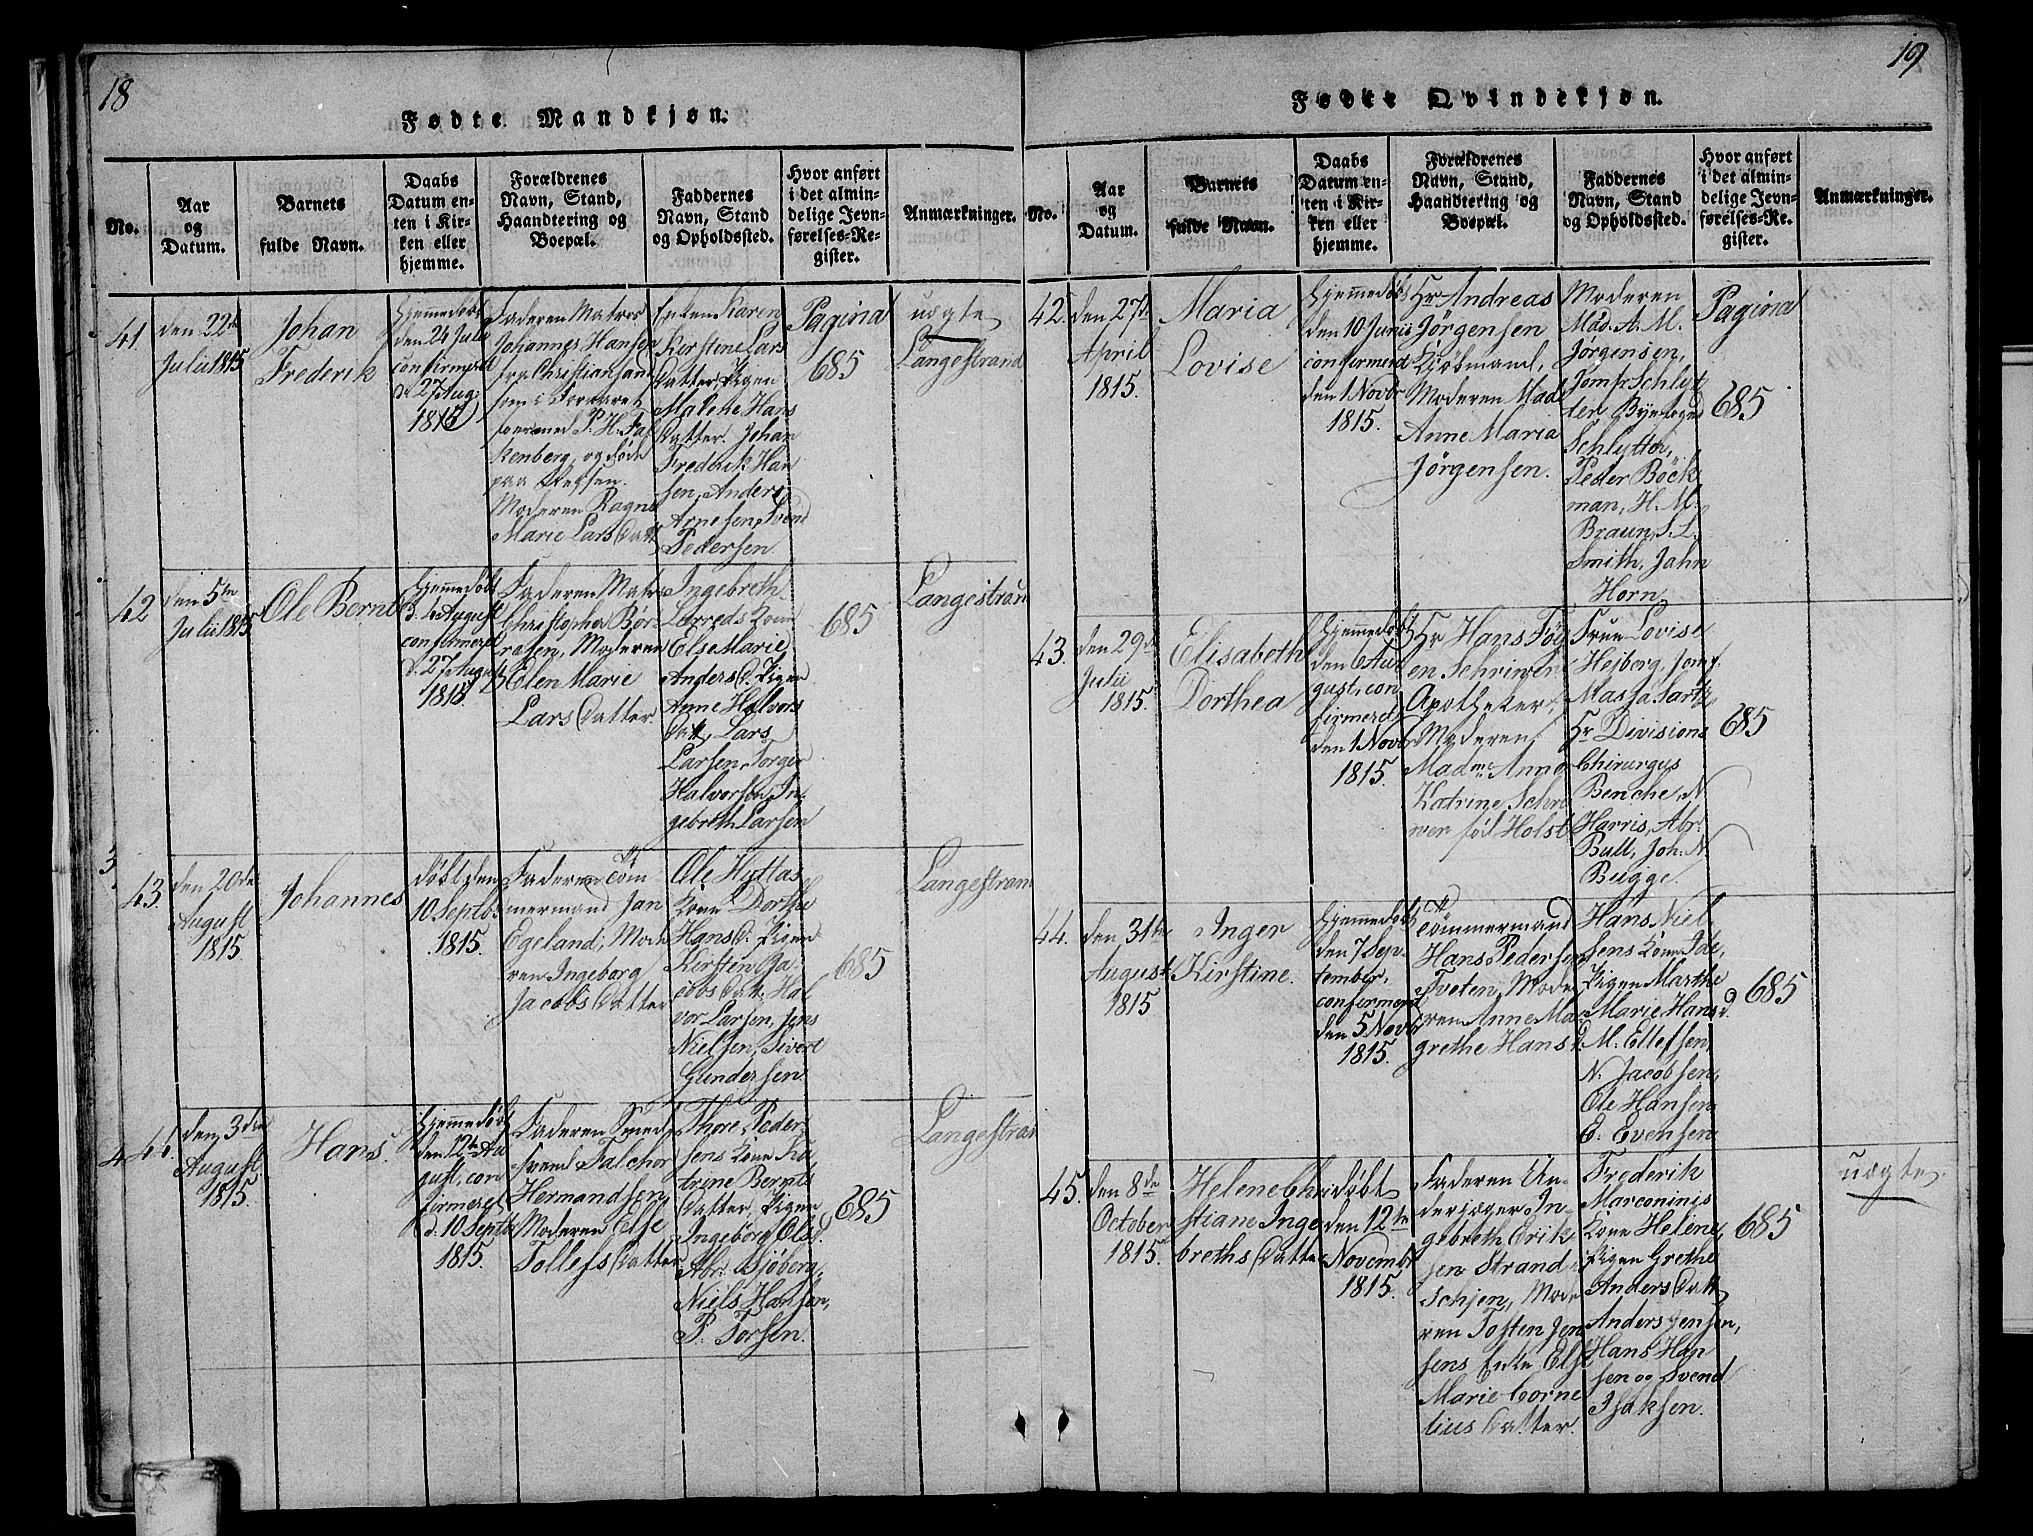 18
Fødte Mandkjøn.
No.
Aar
og
Datum.
Barnets
fulde Navn.
Daabs
Datum en-
ten i Kir-
ken eller
hjemme.
Forældrenes
Navn, Stand,
Haandtering og
Boepæl.
Faddernes
Navn, Stand
og Opholdssted.
Hvor anført
i det almin-
delige Jevn-
førelses-Re-
gister.
Anmærkninger.
41.
den 22de
Julii 1815
Johan
Frederik
Hjemmedøbt
den 24 Julii
confirmeret
d. 27 Aug.
1815
Faderen Matros
Johannes Hansen
fra Christiansand
som i Foraaret
foer med P. H. Fal
kenberg, og døde
paa Reisen.
Moderen Ragne
Marie Lars Datt
Enken Karen
Kirstine Lars
Datter, Pigen
Malene Hans
Datter. Johan
Frederik Han
sen, Anders
Arnesen, Svend
Pedersen
Pagina
685
uægte
Langestrand
42
den 5te
Julii 1815
Ole Bernt
Hjemmedøbt
d. August
confirmeret
d. 27 August
1815
Faderen Matros
Christopher Bør
resen, Moderen
Elen Marie
Lars Datter
Ingebreth
Kone
Else Marie
Anders D. Pigen
Anne Halvors
Datt, Lars
Larsen, Torger
Halvorsen, In-
gebreth Larsen
685
Langestran
43.
den 20de
August
1815
Johannes
døbt den
10 Septbr
1815.
Faderen Töm-
mermand Jan
Egeland, Mode
ren Ingeborg
Jacobs Datter
Ole Hyttas
Kone Dorthe
Hans D. Pigen
Kirsten Ja-
cobs Datt, Hal
vor Larsen, Jens
Nielsen, Sivert
Gundersen
685
Langestran
44.
den 3die
August
1815.
Hans.
Hjemmedøbt
den 12te Au
gust, con
firmeret
d. 10 Septbr
1815.
Faderen Smed
svend Falchor
Hermandsen
Moderen Else
Tollefs Datter
Thore Peder-
sens Kone Ka
trine Bernts
Datter, Pigen
Ingeborg Olsd.
Abr. Sjöberg,
Niels Hansen,
P. Torsen.
685
Langestran
19
Fødte Qvindekjøn.
No.
Aar
og
Datum.
Barnets
fulde Navn.
Daabs
Datum en-
ten i Kir-
ken eller
hjemme.
Forældrenes
Navn, Stand,
Haandtering og
Boepæl.
Faddernes
Navn, Stand
og Opholdssted.
Hvor anført
i det almin-
delige Jevn-
førelses-Re-
gister.
Anmærkninger.
42.
den 27de
April
1815.
Maria
Lovise
Hjemmedøbt
den 10 Junii
confirmered
den 1 Novbr
1815.
Hr Andreas
Jörgensen
Kjöbmand,
Moderen Mad
Anne Maria
Jörgensen.
Moderen
Mad. A. M.
Jörgensen,
Jomfr Schlyt
ter, Byefoged
Schlytter,
Peder Böck
man, H. M.
Braun, S. L.
Smith, Jahn
Horn.
Pagina
685
43.
den 29de
Julii
1815.
Elisabeth
Dorthea
Hjemmedøbt
den 6 Au
gust, con
firmeret
den 1 Novbr
1815.
Hr Hans Föy
en Schriwer
Apotheker,
Moderen
Madme Anne
Katrine Schri
wer föd Holst
Frue Lovise
Hejberg, Jomf.
Massa Sartz,
Hr Divisions
Chirurgus
Benche, N
Harris, Abr.
Bull, Joh. N.
Bugge.
685
44.
den 31te
August
1815
Inger
Kirstine.
Hjemmedøbt
den 7 Sep-
tember,
confirmered
den 5 Novbr
1815.
Tömmermand
Hans Pedersen
Tveten, Mode
ren Anne Mar
grethe Hans D.
Hans Niel
sens Kone Ide,
Pigen Marthe
Marie Hans d.
M. Ellefsen,
N. Jacobsen,
Ole Hansen
E. Evensen
685
45.
den 8de
October
1815.
Helene Chri
stiane Inge
breths Datter
døbt
den 12te
Novembr
1815.
Faderen Un-
derjæger In-
gebreth Erik
sen Strand-
Schjen, Mode
ren Tosten Jen
sens Enke Else
Marie Corne
lius Datter.
Frederik
Marconinis
Kone Helene,
Pigen Grethe
Anders Datt
Anders Jensen,
Hans Han
sen og Svend
Isaksen.
685
uægte